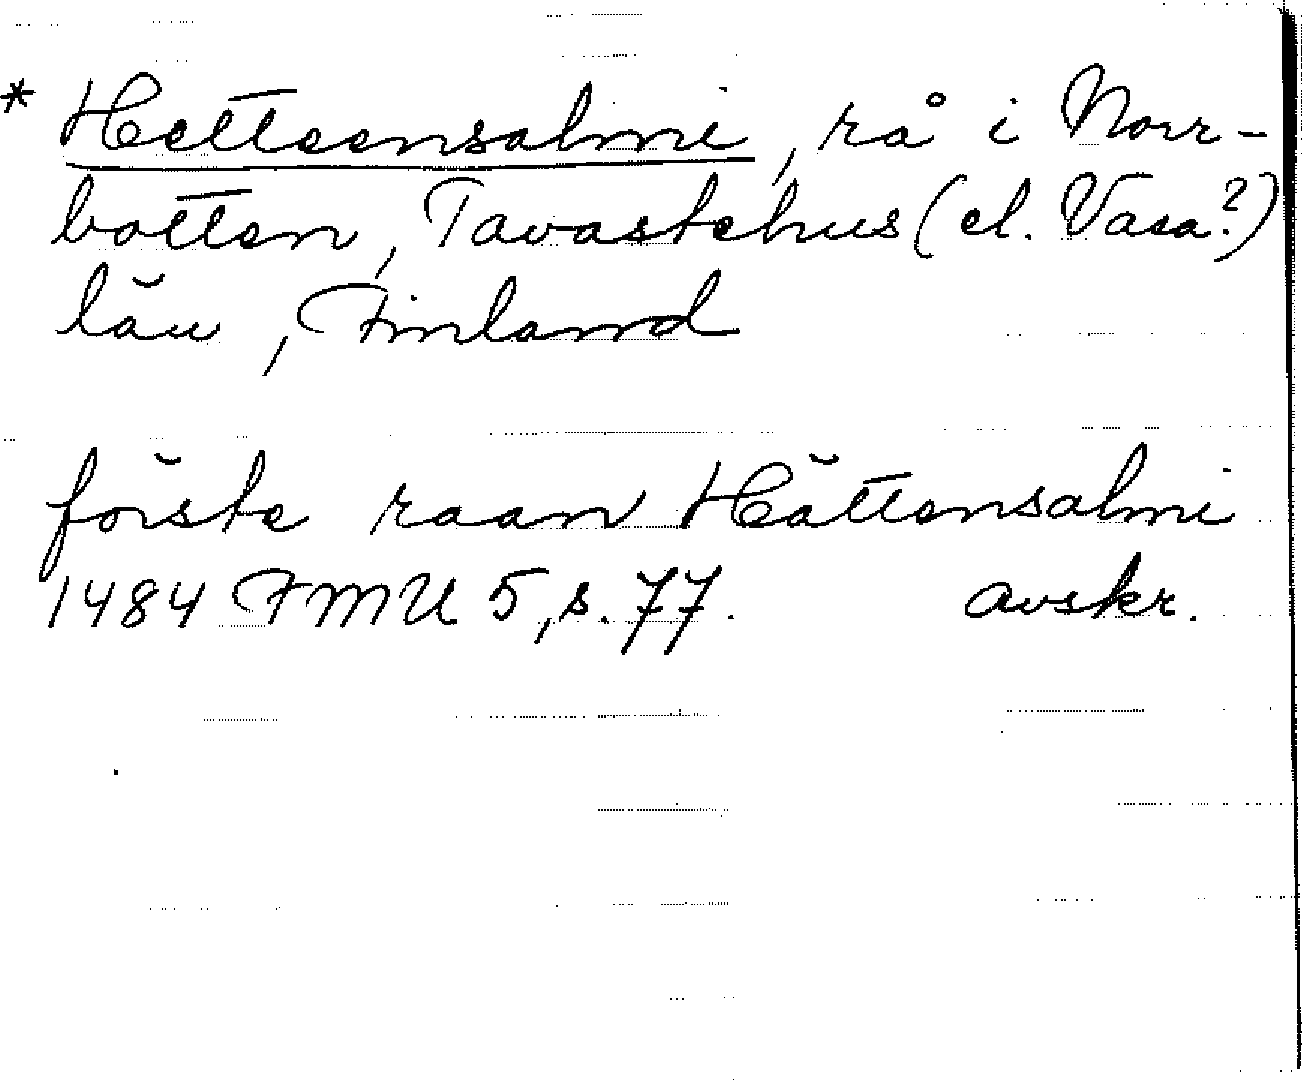 * Hetteensalmi, rå i Norr-
botten, Tavastehus (el. Vasa?)
län, Finland
förste raan Hättensalmi
1484 FMU 5, s. 77. avskr.